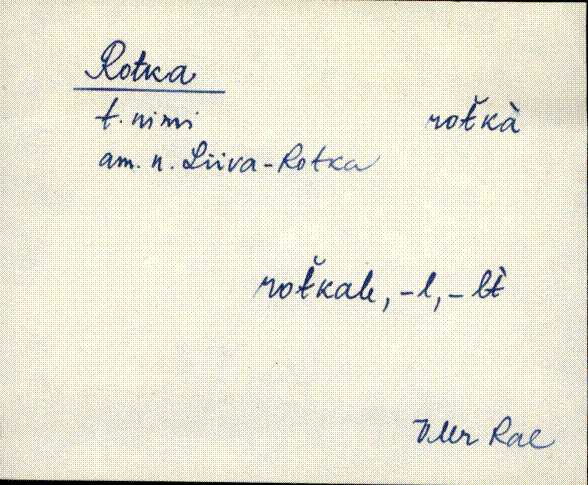 Rotka
t. nimi rot̆kà
am. n. Liiva-Rotka
rot̆kale, -l, -lt̀
Rae